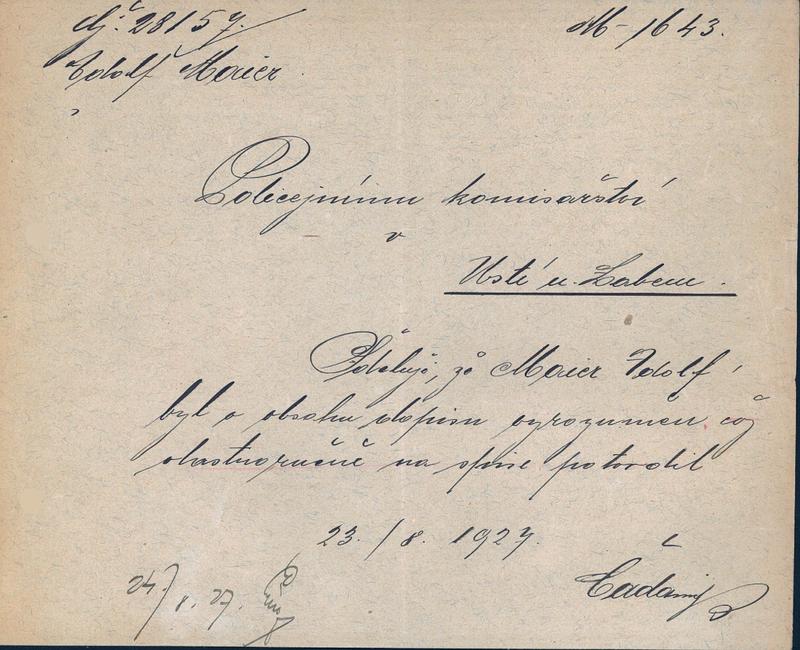 Čj: 28157. M-1643.
Adolf Maier
Policejnímu komisařství
v
Ustí n. Labem.
Sděluji, že Maier Adolf,
byl o obsahu dopisu vyrozuměn což
vlastnoručně na spise potvrdil
23./8. 1927.
24/8. 27.